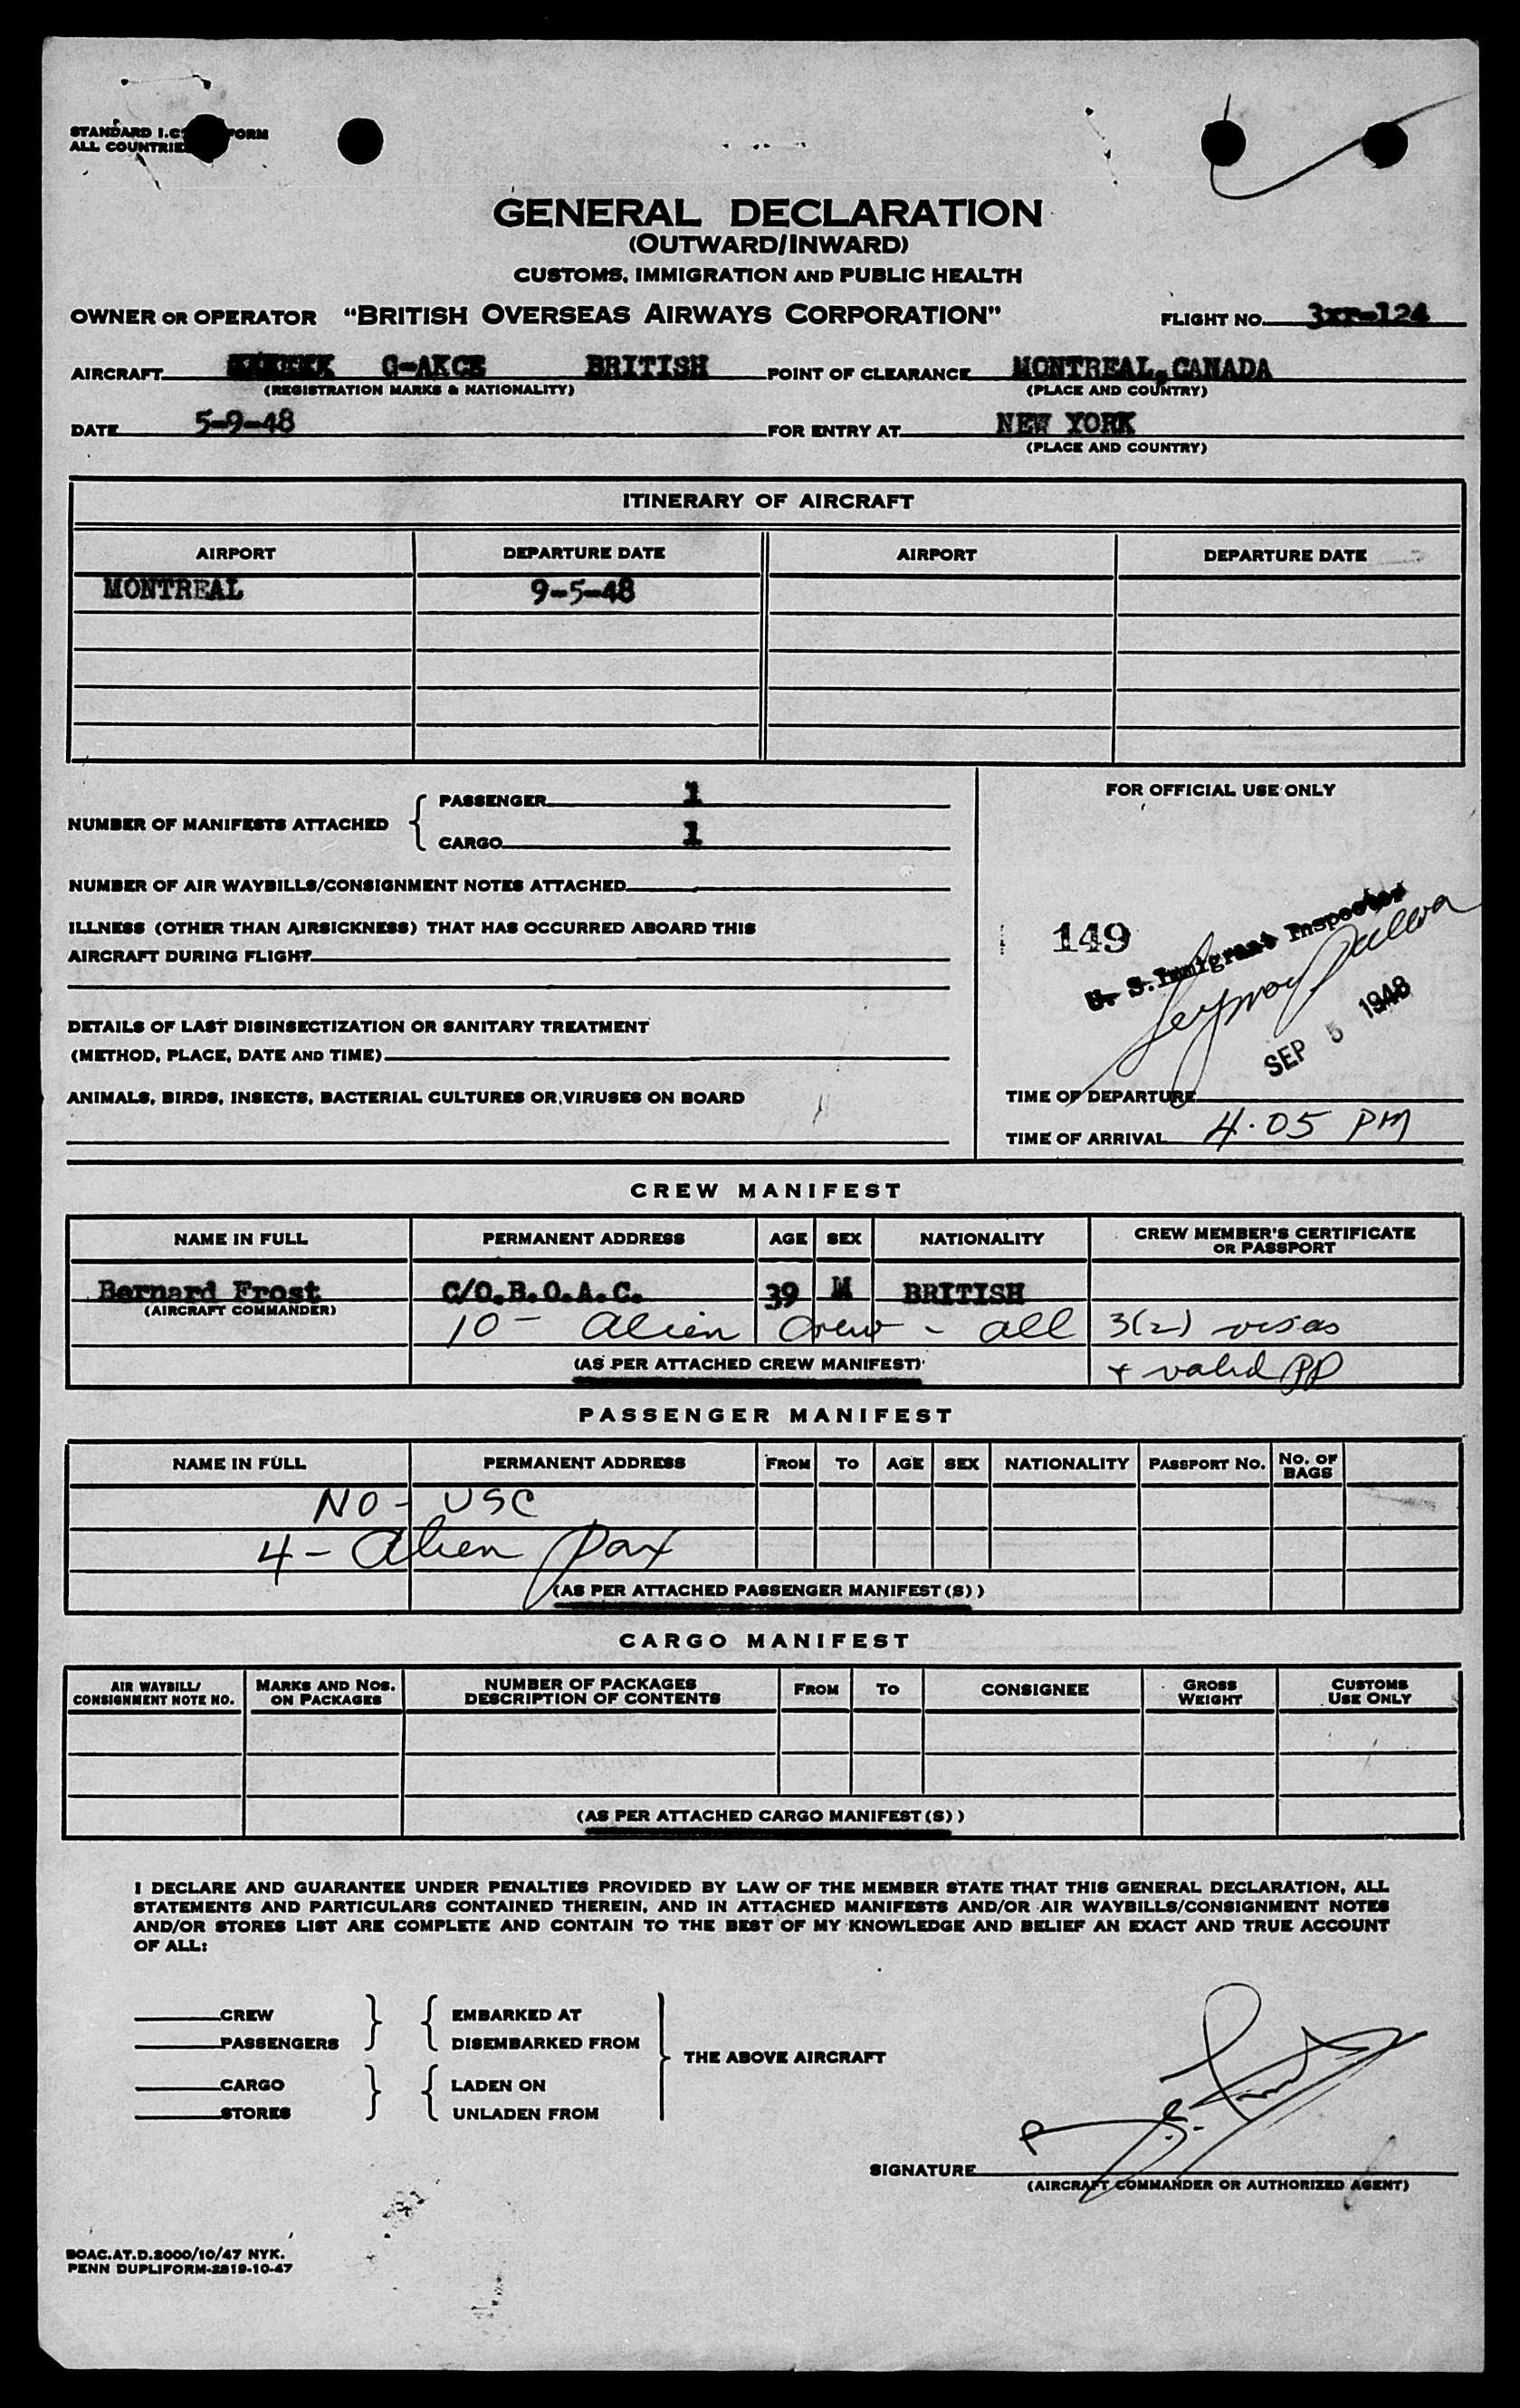 STANDARD I.C FORM
ALL COUNTRIE
GENERAL DECLARATION
(OUTWARD/INWARD)
CUSTOMS, IMMIGRATION AND PUBLIC HEALTH
OWNER OR OPERATOR "BRITISH OVERSEAS AIRWAYS CORPORATION" FLIGHT NO. 3xr-124
AIRCRAFT G-AKCE BRITISH POINT OF CLEARANCE MONTREAL, CANADA
(REGISTRATION MARKS & NATIONALITY) (PLACE AND COUNTRY)
DATE 5-9-48 FOR ENTRY AT NEW YORK
(PLACE AND COUNTRY)
ITINERARY OF AIRCRAFT
AIRPORT DEPARTURE DATE AIRPORT DEPARTURE DATE
MONTREAL 9-5-48
NUMBER OF MANIFESTS ATTACHED PASSENGER 1
CARGO 1
NUMBER OF AIR WAYBILLS/CONSIGNMENT NOTES ATTACHED
ILLNESS (OTHER THAN AIRSICKNESS) THAT HAS OCCURRED ABOARD THIS
AIRCRAFT DURING FLIGHT
DETAILS OF LAST DISINSECTIZATION OR SANITARY TREATMENT
(METHOD, PLACE, DATE AND TIME)
ANIMALS, BIRDS, INSECTS, BACTERIAL CULTURES OR VIRUSES ON BOARD
FOR OFFICIAL USE ONLY
149
U. S. Immigrant Inspector
SEP 5 1948
TIME OF DEPARTURE
TIME OF ARRIVAL 4.05 PM
CREW MANIFEST
NAME IN FULL PERMANENT ADDRESS AGE SEX NATIONALITY CREW MEMBER'S CERTIFICATE OR PASSPORT
Bernard Frost C/O.B.O.A.C. 39 M BRITISH
(AIRCRAFT COMMANDER)
10 - alien crew - all 3(2) visas
(AS PER ATTACHED CREW MANIFEST) + valid PP
PASSENGER MANIFEST
NAME IN FULL PERMANENT ADDRESS FROM TO AGE SEX NATIONALITY PASSPORT NO. NO. OF BAGS
NO - USC
4 - alien pax
(AS PER ATTACHED PASSENGER MANIFEST(S))
CARGO MANIFEST
AIR WAYBILL/ CONSIGNMENT NOTE NO. MARKS AND NOS. ON PACKAGES NUMBER OF PACKAGES DESCRIPTION OF CONTENTS FROM TO CONSIGNEE GROSS WEIGHT CUSTOMS USE ONLY
(AS PER ATTACHED CARGO MANIFEST(S))
I DECLARE AND GUARANTEE UNDER PENALTIES PROVIDED BY LAW OF THE MEMBER STATE THAT THIS GENERAL DECLARATION, ALL
STATEMENTS AND PARTICULARS CONTAINED THEREIN, AND IN ATTACHED MANIFESTS AND/OR AIR WAYBILLS/CONSIGNMENT NOTES
AND/OR STORES LIST ARE COMPLETE AND CONTAIN TO THE BEST OF MY KNOWLEDGE AND BELIEF AN EXACT AND TRUE ACCOUNT
OF ALL:
CREW EMBARKED AT
PASSENGERS DISEMBARKED FROM
THE ABOVE AIRCRAFT
CARGO LADEN ON
STORES UNLADEN FROM
SIGNATURE
(AIRCRAFT COMMANDER OR AUTHORIZED AGENT)
BOAC.AT.D.2000/10/47 NYK.
PENN DUPLIFORM-2819-10-47